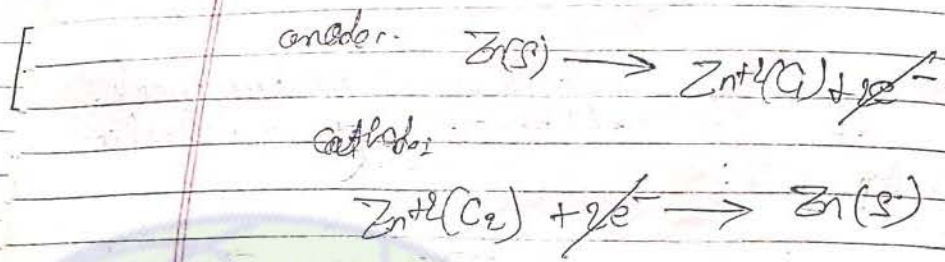 anode:. Zn(s) ⟶ Zn+2(C1) + 2e-
cathode:
Zn+2(C2) + 2e- ⟶ Zn(s)